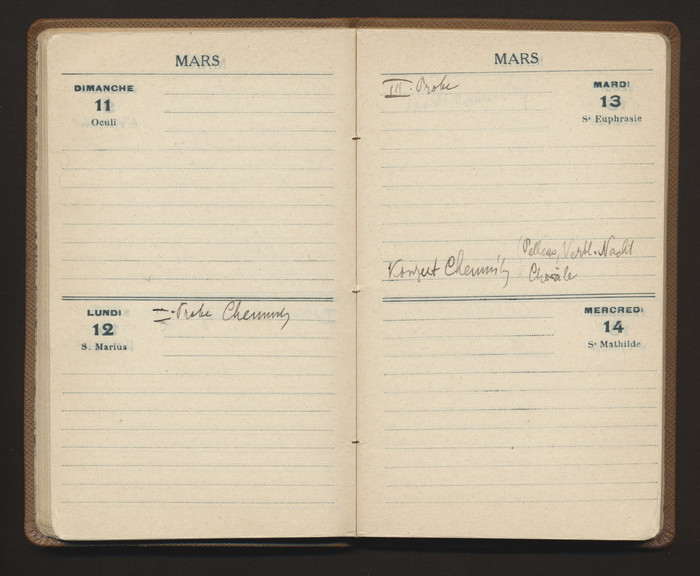 MARS
DIMANCHE
11
Oculi
LUNDI
12
S. Marius
I. Probe Chemnitz
MARS
III. Probe
MARDI
13
Sᵉ Euphrasie
Konzert Chemnitz (Pelleas, Verkl. Nacht
Choräle
MERCREDI
14
Sᵉ Mathilde